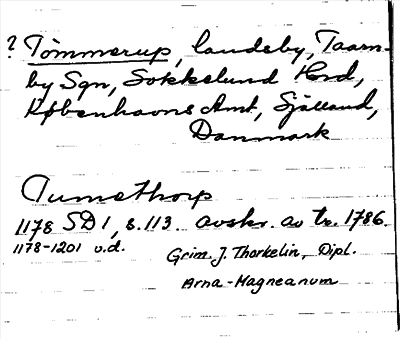 ? Tömmerup, landsby, Taarn-
by Sgn, Sokkelund Hrd,
Københavns Amt, Sjælland,
Danmark
Tumethorp
1178 SD 1, s. 113. avskr. av tr. 1786.
1178-1201 u.d. Grim. J. Thorkelin, Dipl.
Arna-Magneanum